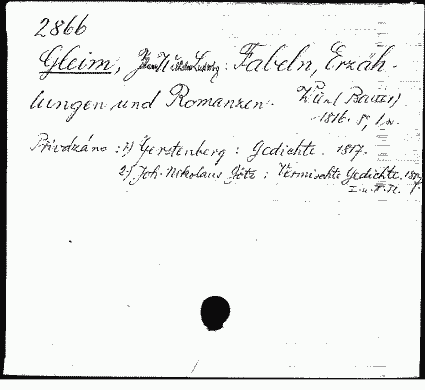 2866
Gleim, Ludwig: Fabeln, Erzäh-
lungen und Romanzen. (Bauer)
1816. 8, 1.
Přivázáno: 1) Gerstenberg: Gedichte. 1817.
2) Joh. Nikolaus Götz: Vermischte Gedichte.